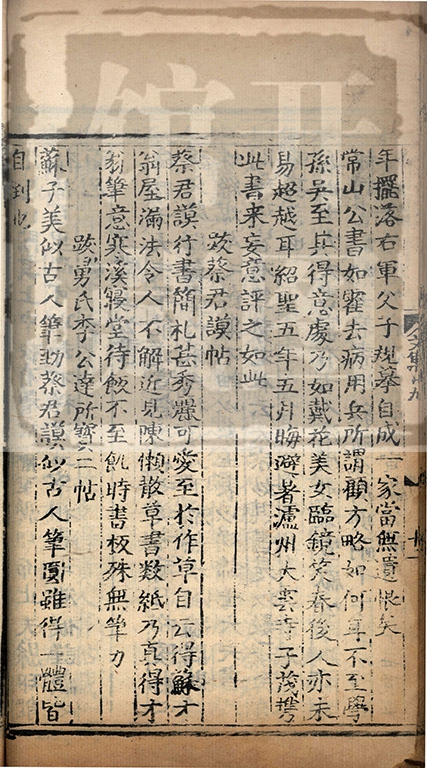 年擺落右軍父子規摹自成一家當無遺恨矣
常山公書如霍去病用兵所謂顧方略如何耳不至學
孫吳至其得意處乃如戴花美女臨鏡笑春後人亦未
易超越耳紹聖五年五月晦避暑瀘州大雲寺子茂攜
此書来妄意評之如此
跋蔡君謨帖
蔡君謨行書簡札甚秀麗可愛至於作草自云得蘇才
翁屋漏法令人不解近見陳懶散草書数紙乃真得才
翁筆意寒溪寢堂待飯不至飢時書板殊無筆力
跋舅氏李公達所寶二帖
蘇子美似古人筆勁蔡君謨似古人筆圓雖得一體皆
自到也
文集